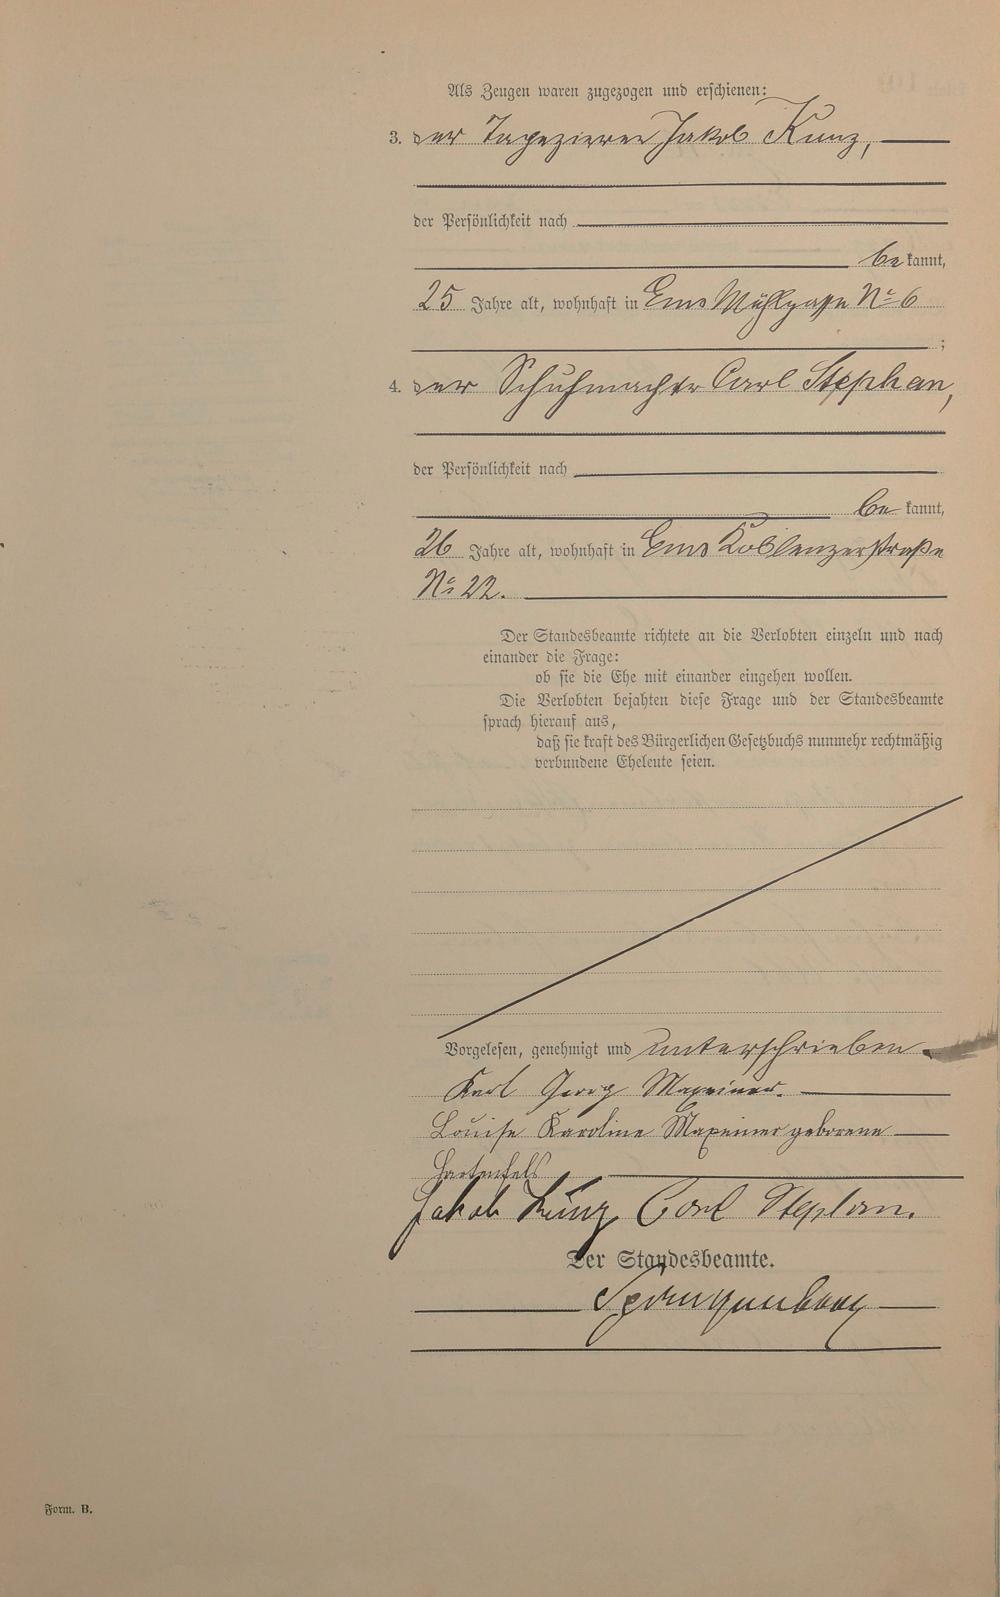 Als Zeugen waren zugezogen und erschienen:
3. der Tapezierer Jakob Kunz,
der Persönlichkeit nach
bekannt,
25 Jahre alt, wohnhaft in Ems Mühlgasse No 6
;
4. der Schuhmacher Carl Stephan,
der Persönlichkeit nach
bekannt,
26 Jahre alt, wohnhaft in Ems Koblenzerstraße
No 22.
Der Standesbeamte richtete an die Verlobten einzeln und nach
einander die Frage:
ob sie die Ehe mit einander eingehen wollen.
Die Verlobten bejahten diese Frage und der Standesbeamte
sprach hierauf aus,
daß sie kraft des Bürgerlichen Gesetzbuchs nunmehr rechtmäßig
verbundene Eheleute seien.
Vorgelesen, genehmigt und unterschrieben.
Karl Georg Maxeiner.
Louise Karoline Maxeiner geborene
Hartenfels
Jakob Kunz Carl Stephan.
Der Standesbeamte.
Form. B.